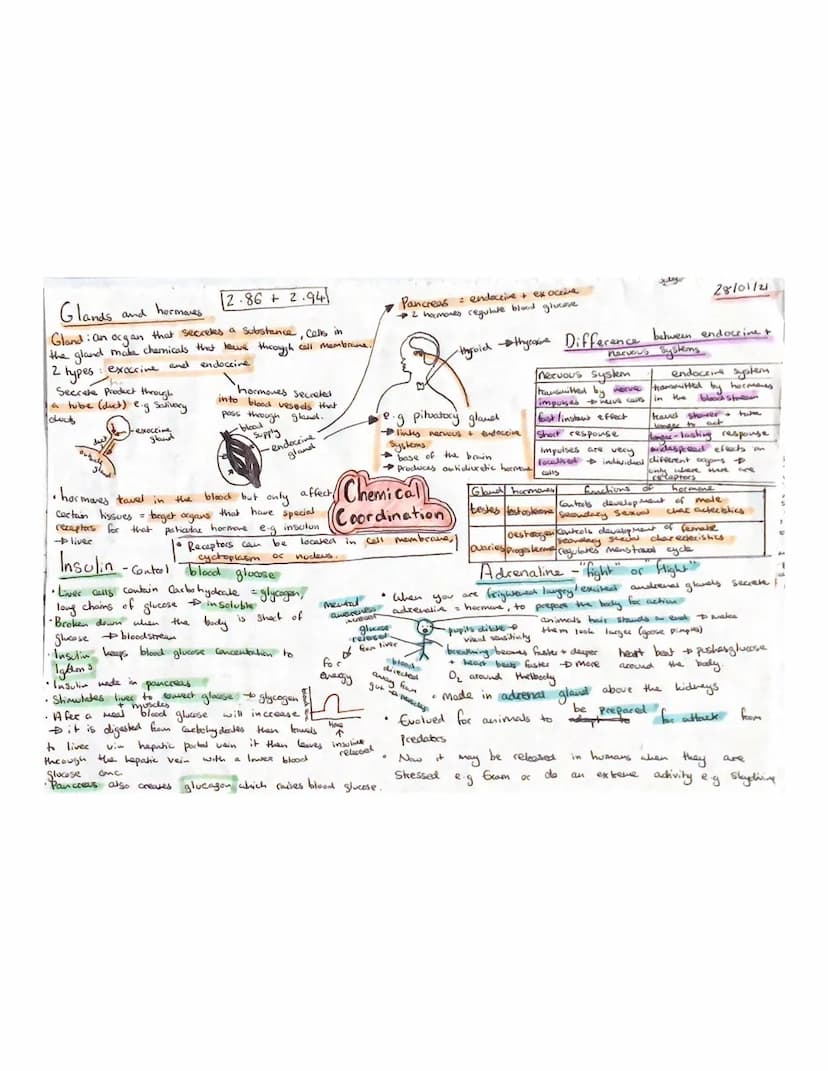 28/01/21
Glands and hormones
2.86 + 2.94
Gland: an organ that secretes a substance, Cells in
the gland make chemicals that leave through cell membrane.
2 types: exocrine and endocrine
Secrete Product through
a tube (duct) e.g Salivary
ducts
duct
exocrine
gland
hormones secreted
into blood vessels that
pass through gland.
blood
supply
endocrine
gland
Pancreas = endocrine + exocrine
→ 2 hormones regulate blood glucose
thyroid → thyroxine
e.g pituatory gland
→ links nervous + endocrine
systems
→ base of the brain
→ produces antidiuretic hormone
Difference between endocrine +
nervous systems
nervous system
endocrine system
transmitted by nerve
impulses → nerve cells
transmitted by hormones
in the bloodstream
fast/instant effect
travel slower + take
longer to act
Short response
longer-lasting response
impulses are very
localised → individual
cells
widespread effects on
different organs →
only where there are
receptors
• hormones travel in the blood but only affect
certain tissues = target organs that have special
receptors for that particular hormone e.g insulin
→ liver
• Receptors can be located in cell membrane,
cyctoplasm or nucleus.
Chemical
Coordination
Gland
hormones
functions of hormone
testes
testosterone
Controls development of male
secondary sexual characteristics
ovaries
oestrogen
controls development of female
secondary sexual characteristics
progesterone
regulates menstrual cycle
Insulin - control blood glucose
• Liver cells contain Carbohydrate = glycogen,
long chains of glucose → insoluble
• Broken down when the body is short of
glucose → bloodstream
• Insulin keeps blood glucose concentration to
• Insulin made in pancreas
• Stimulates liver to convert glucose → glycogen
+ muscles
• After a meal blood glucose will increase
→ it is digested from carbohydrates then travels
to liver via hepatic portal vein it then leaves
through the hepatic vein with a lower blood
glucose conc.
• Pancreas also creates glucagon which raises blood glucose.
time
insulin
released
Adrenaline - "fight" or "flight"
• When you are frightened/angry/excited andrenal glands secrete
adrenaline = hormone, to prepare the body for action
mental
awareness
increased
glucose
released
from liver
for
energy
blood
diverted
away from
animals hair stands on end → makes
them look larger (goose pimples)
pupils dilate →
visual sensitivity
breathing becomes faster + deeper
+ heart beats faster → more
O₂ around the body
heart beat → pushes glucose
around the body.
• made in adrenal gland above the kidneys
• Evolved for animals to be prepared for attack from
Predators
• Now it may be released in humans when they are
Stressed e.g Exam or do an extreme activity e.g Skydiving